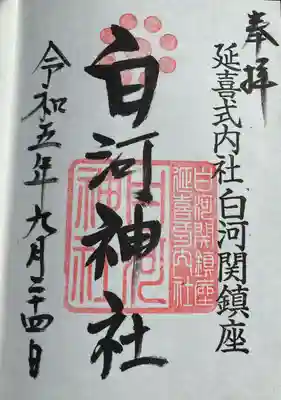 奉拝
延喜式内社 白河関鎮座
白河神社
令和五年九月二十四日
白河関鎮座
延喜式内社
白河
神社